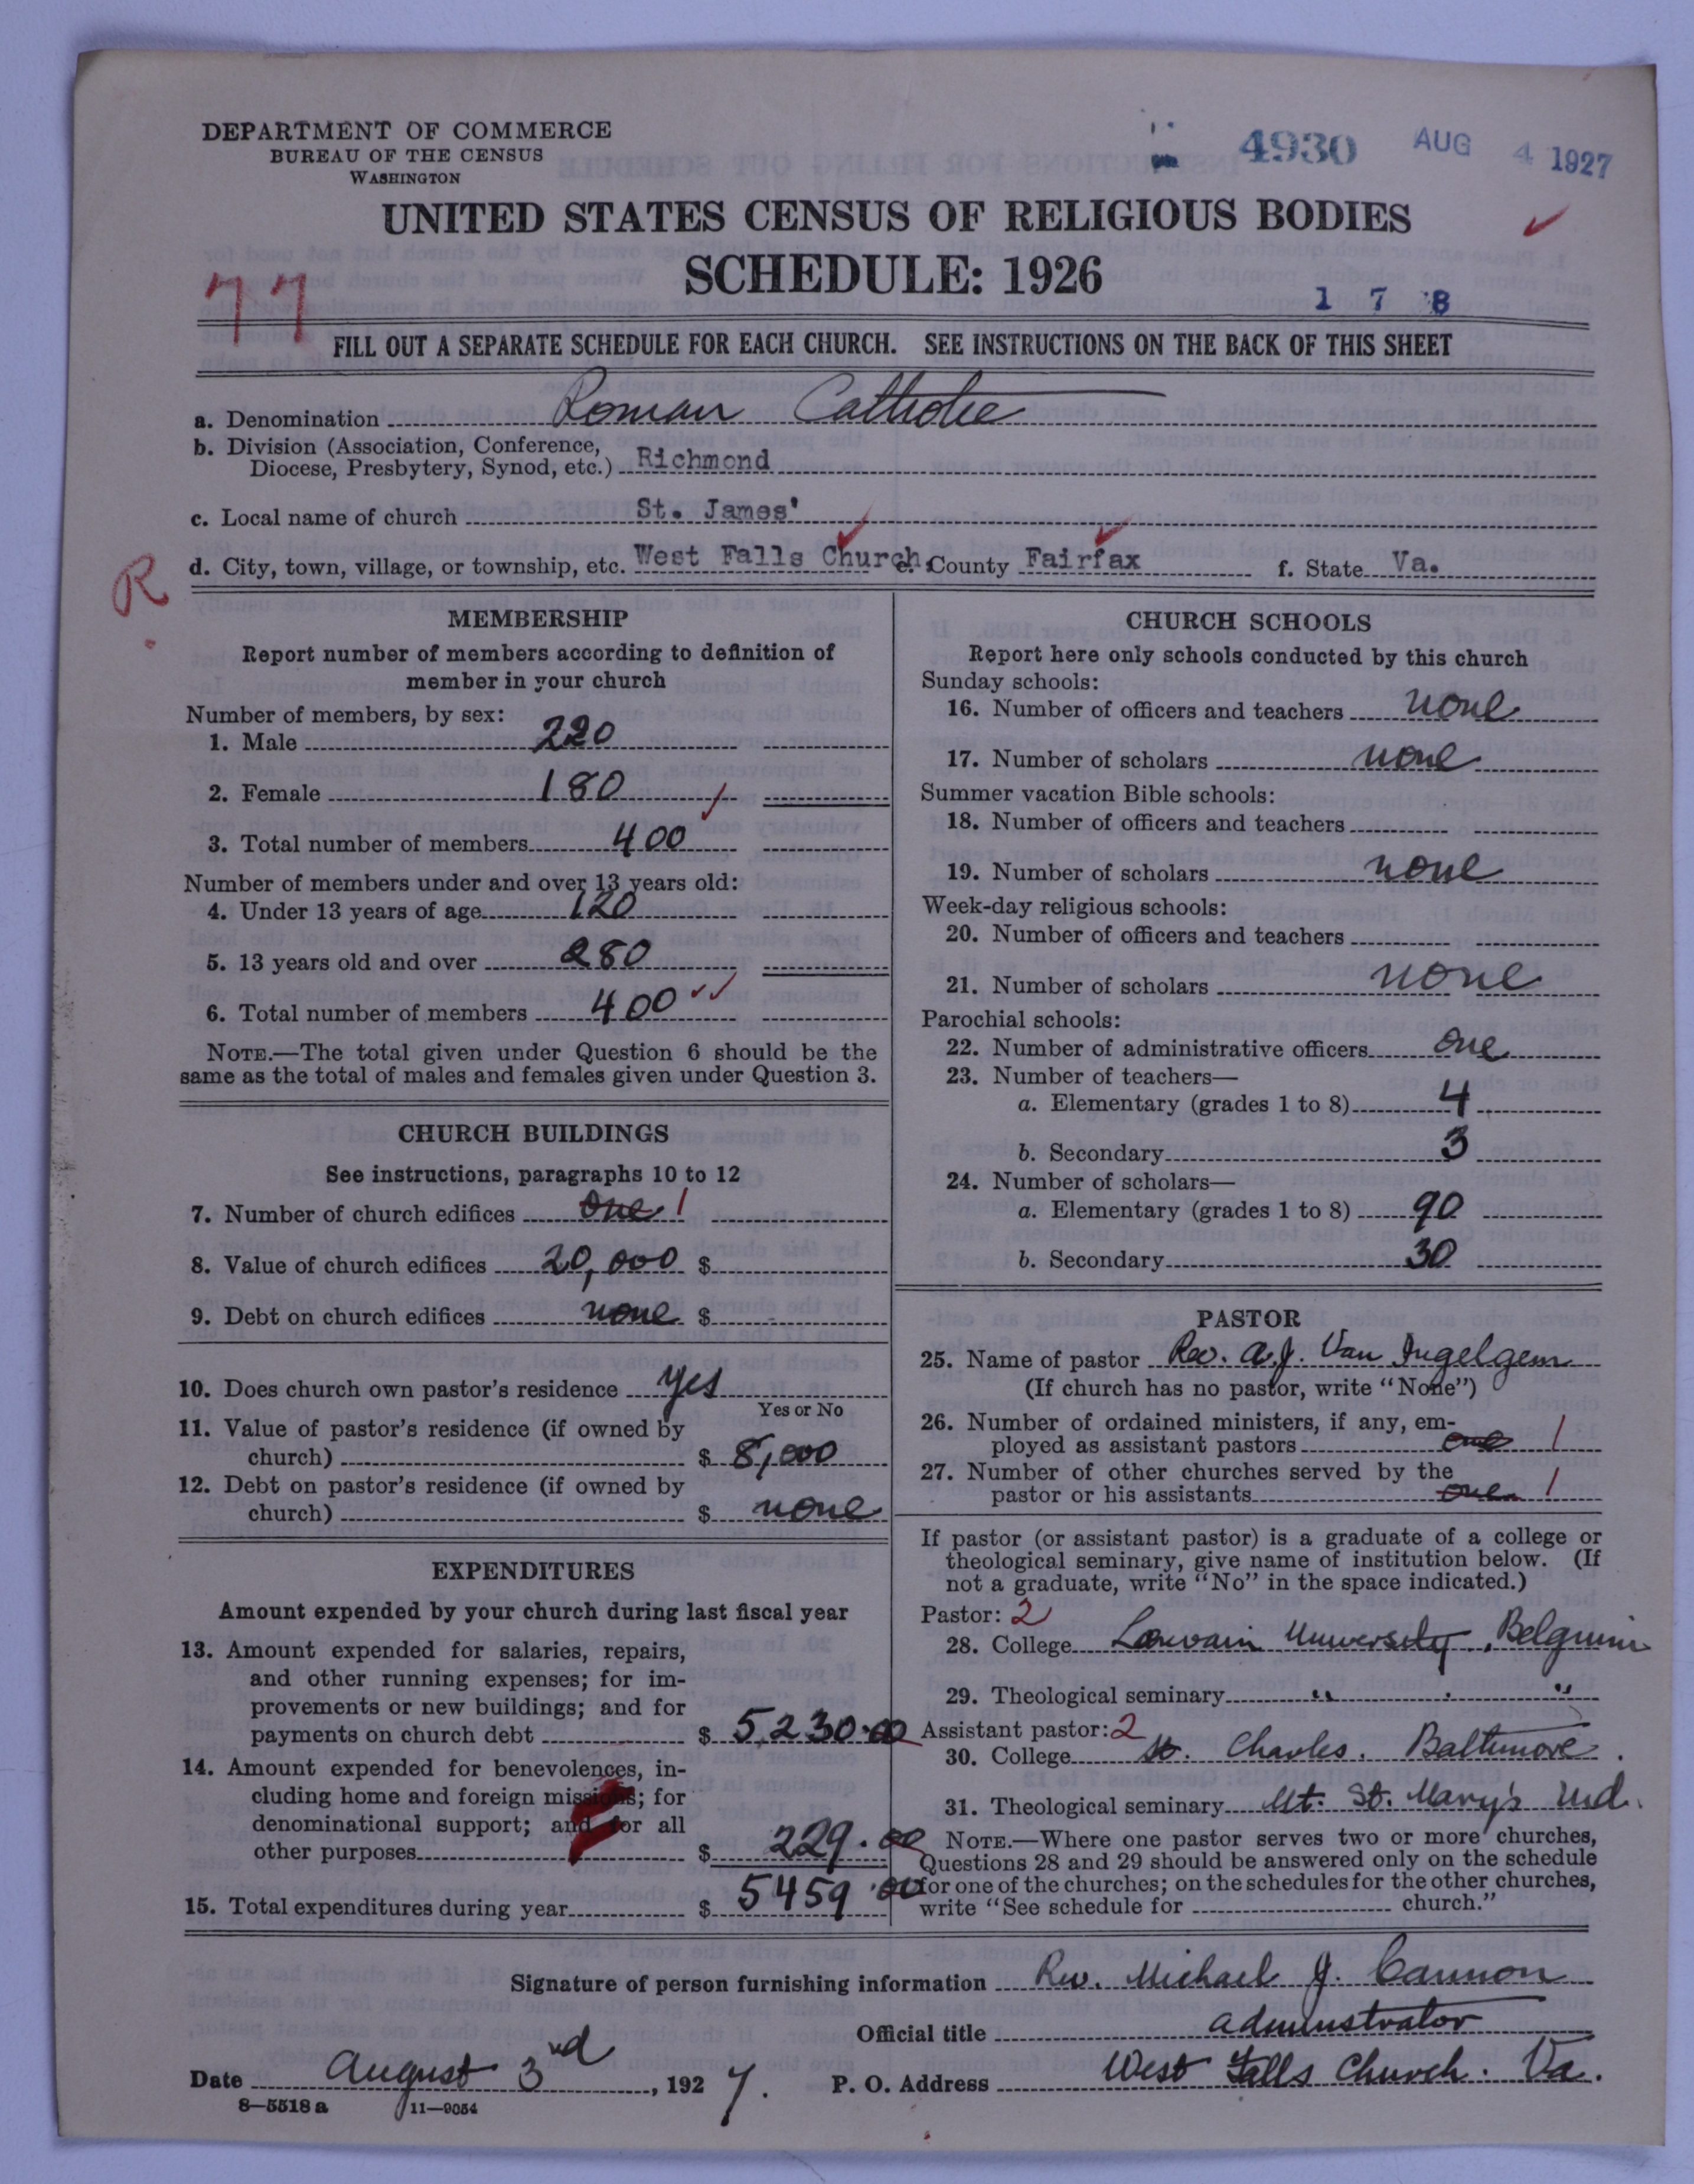 DEPARTMENT OF COMMERCE
BUREAU OF THE CENSUS
WASHINGTON
4930 AUG 4 1927
UNITED STATES CENSUS OF RELIGIOUS BODIES
SCHEDULE: 1926
77
1 7 8
FILL OUT A SEPARATE SCHEDULE FOR EACH CHURCH. SEE INSTRUCTIONS ON THE BACK OF THIS SHEET
a. Denomination Roman Catholic
b. Division (Association, Conference,
Diocese, Presbytery, Synod, etc.) Richmond
c. Local name of church St. James'
d. City, town, village, or township, etc. West Falls Church, e. County Fairfax f. State Va.
R
MEMBERSHIP
Report number of members according to definition of
member in your church
Number of members, by sex:
1. Male 220
2. Female 180
3. Total number of members 400
Number of members under and over 13 years old:
4. Under 13 years of age 120
5. 13 years old and over 280
6. Total number of members 400
NOTE.—The total given under Question 6 should be the
same as the total of males and females given under Question 3.
CHURCH BUILDINGS
See instructions, paragraphs 10 to 12
7. Number of church edifices One 1
8. Value of church edifices 20,000 $
9. Debt on church edifices none $
10. Does church own pastor's residence yes
Yes or No
11. Value of pastor's residence (if owned by
church) $ 8,000
12. Debt on pastor's residence (if owned by
church) $ none
EXPENDITURES
Amount expended by your church during last fiscal year
13. Amount expended for salaries, repairs,
and other running expenses; for im-
provements or new buildings; and for
payments on church debt $ 5,230.00
14. Amount expended for benevolences, in-
cluding home and foreign missions; for
denominational support; and for all
other purposes $ 229.00
15. Total expenditures during year $ 5459.00
CHURCH SCHOOLS
Report here only schools conducted by this church
Sunday schools:
16. Number of officers and teachers none
17. Number of scholars none
Summer vacation Bible schools:
18. Number of officers and teachers
19. Number of scholars none
Week-day religious schools:
20. Number of officers and teachers
21. Number of scholars none
Parochial schools:
22. Number of administrative officers one
23. Number of teachers—
a. Elementary (grades 1 to 8) 4
b. Secondary 3
24. Number of scholars—
a. Elementary (grades 1 to 8) 90
b. Secondary 30
PASTOR
25. Name of pastor Rev. A.J. Van Ingelgem
(If church has no pastor, write "None")
26. Number of ordained ministers, if any, em-
ployed as assistant pastors one 1
27. Number of other churches served by the
pastor or his assistants one 1
If pastor (or assistant pastor) is a graduate of a college or
theological seminary, give name of institution below. (If
not a graduate, write "No" in the space indicated.)
Pastor: 2
28. College Louvain University, Belgium
29. Theological seminary " "
Assistant pastor: 2
30. College St. Charles. Baltimore.
31. Theological seminary Mt. St. Mary's Md.
NOTE.—Where one pastor serves two or more churches,
Questions 28 and 29 should be answered only on the schedule
for one of the churches; on the schedules for the other churches,
write "See schedule for church."
Signature of person furnishing information Rev. Michael J. Cannon
Official title administrator
Date August 3rd, 1927. P. O. Address West Falls Church. Va.
8—5518 a 11—9054